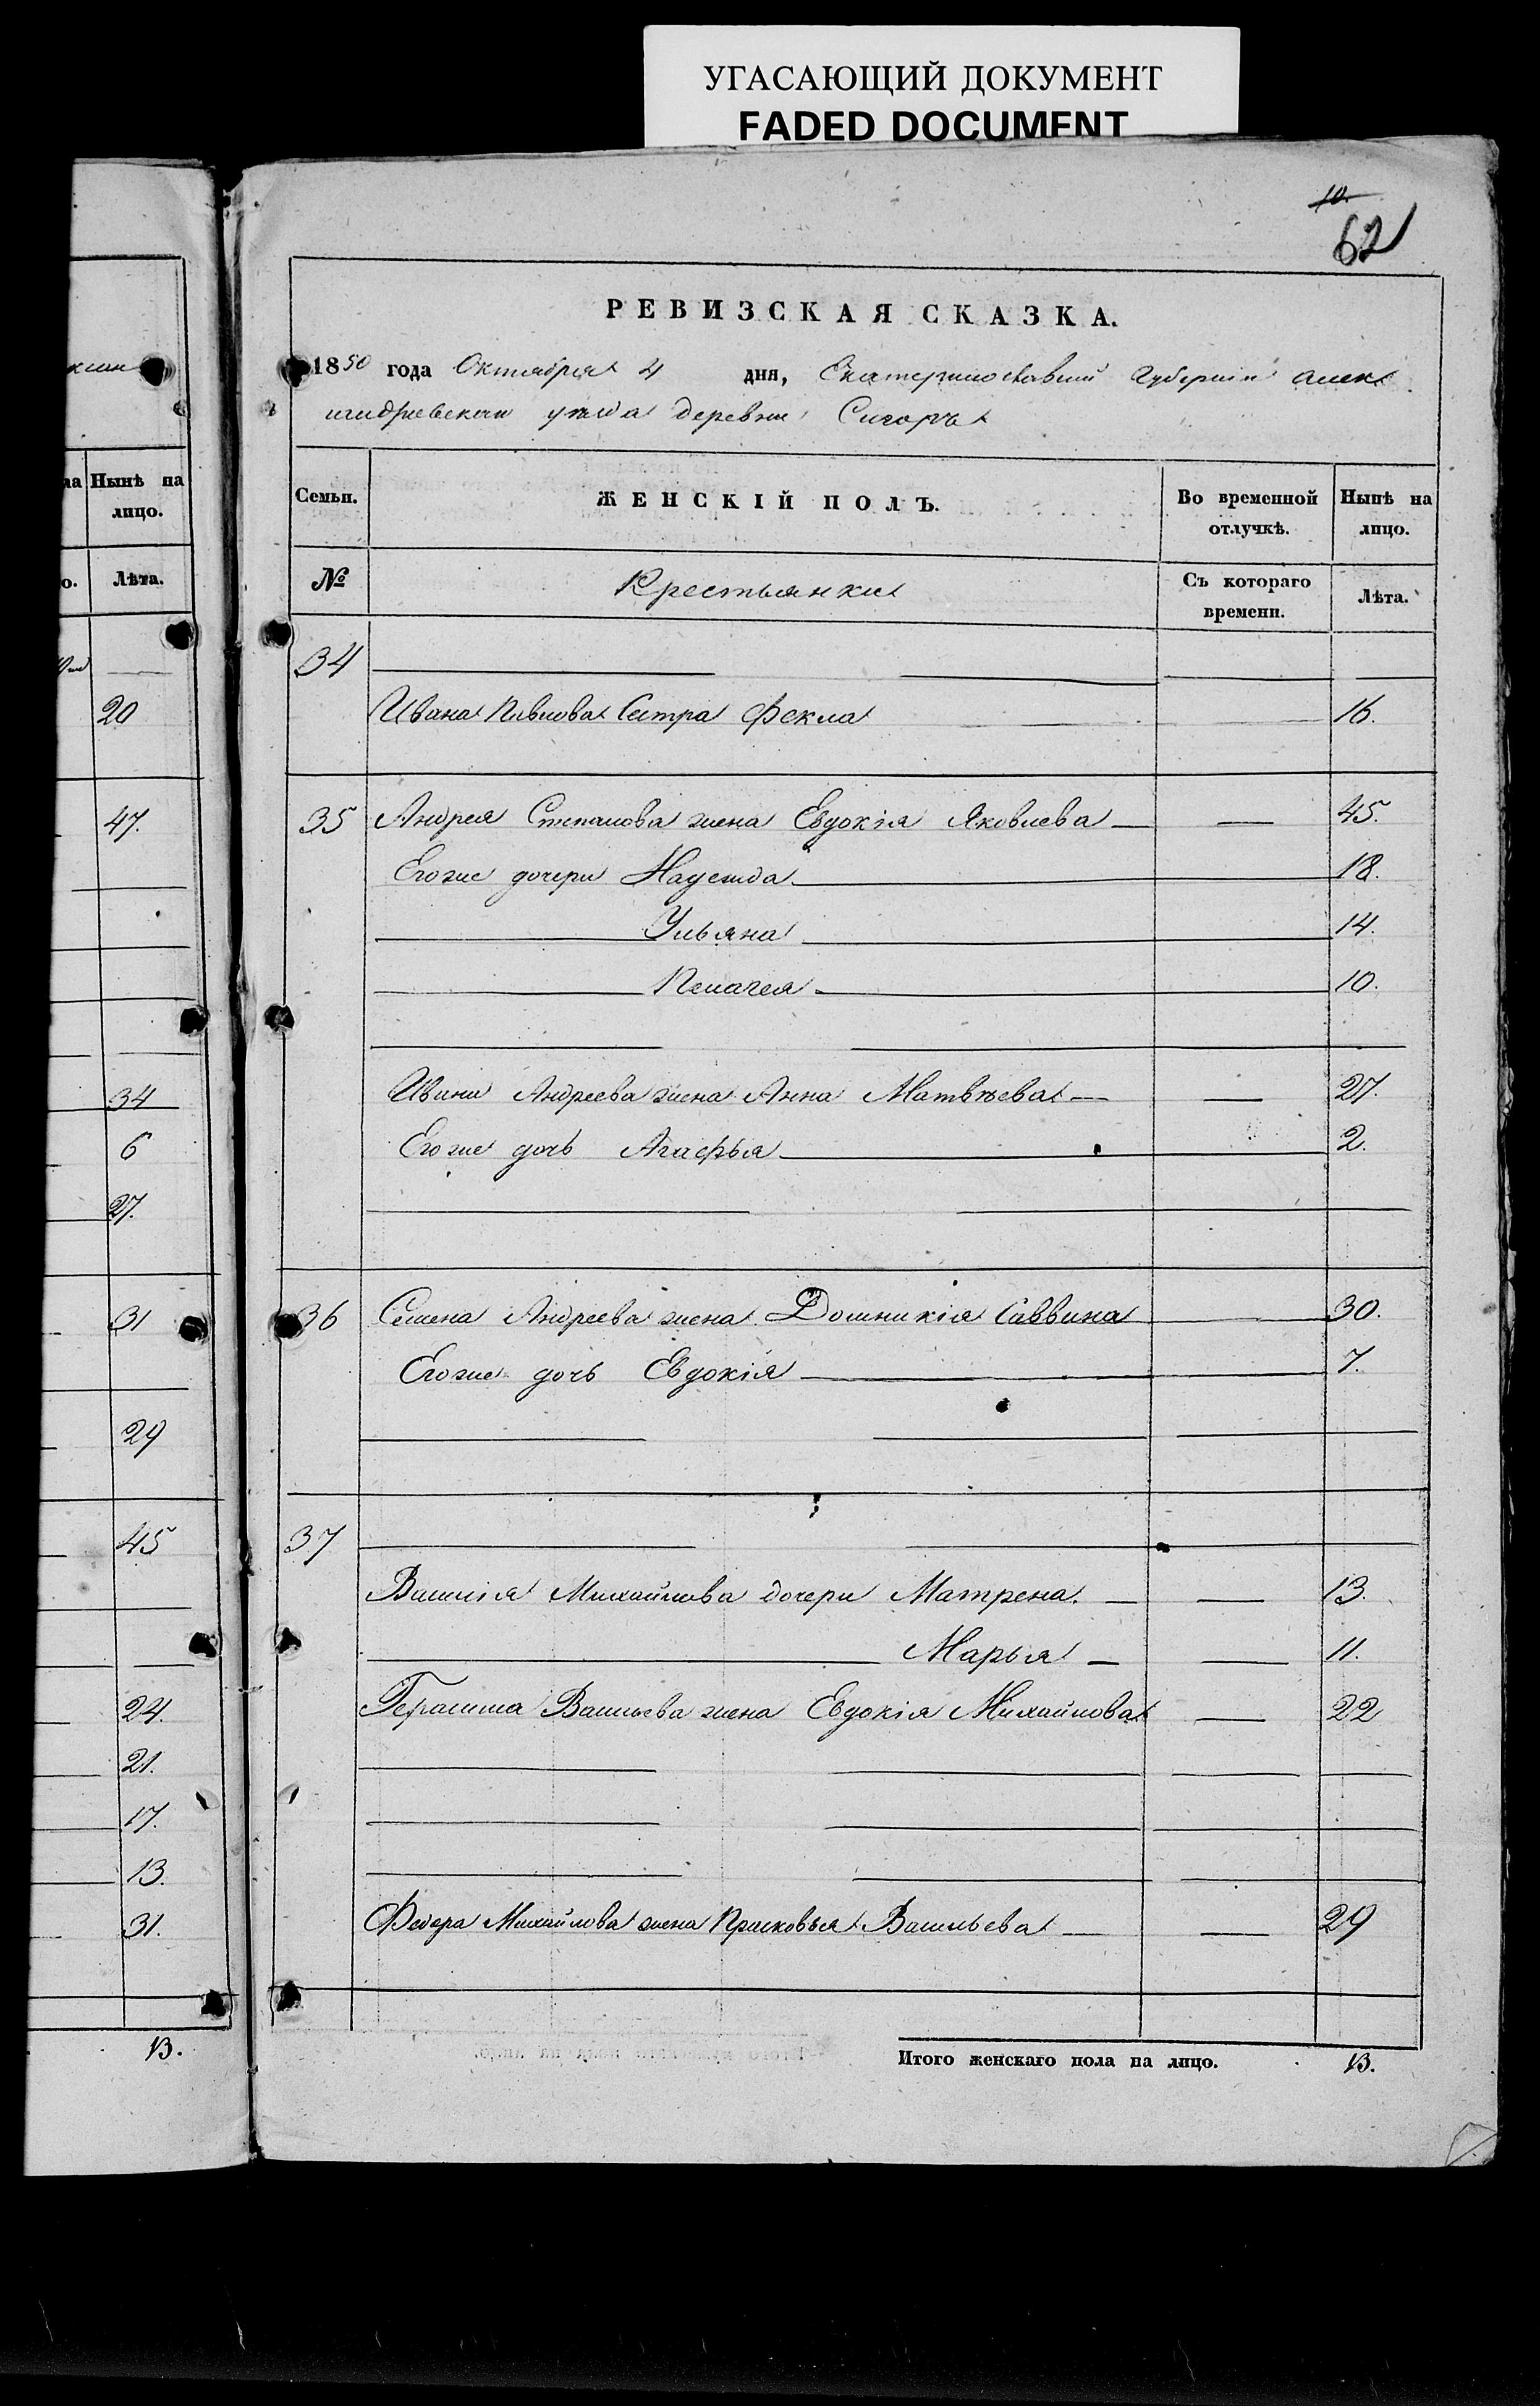 УГАСАЮЩИЙ ДОКУМЕНТ
FADED DOCUMENT
10.
62
Нынѣ на
лицо.
Лѣта.
20
47.
34
6
27.
31
29
45
24.
21.
17.
13.
31.
13.
РЕВИЗСКАЯ СКАЗКА.
1850 года Октября 4 дня, Екатеринославской Губернии алекс
андревскаго уезда деревни
Семьи. ЖЕНСКІЙ ПОЛЪ. Во временной отлучкѣ. Нынѣ на лицо.
№ Крестьянки Съ котораго времени. Лѣта.
34
Ивана Павлова Сестра Фекла 16.
35 Андрея Степанова жена Евдокія Яковлева 45.
Егоже дочери Надежда 18.
Ульяна 14.
Пелагея 10.
Ивана Андреева жена Анна Матвѣева 27.
Егоже дочь Агафья 2.
36 Семена Андреева жена Домникія Саввина 30.
Егоже дочь Евдокія 7.
37
Василія Михайлова дочери Матрена 13.
Марья 11.
Герасима Васильева жена Евдокія Михайлова 22
Федора Михайлова жена Прасковья Васильева 29
Итого женскаго пола на лицо. 13.